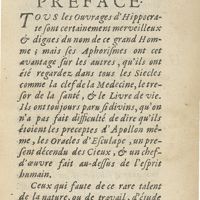 PREFACE.
TOUS les Ouvrages d'Hippocra-
te sont certainement merveilleux
& dignes du nom de ce grand Hom-
me; mais ses Aphorismes ont cet
avantage sur les autres, qu'ils ont
été regardez dans tous les Siecles
comme la clef de la Medecine, le tre-
sor de la santé, & le Livre de vie.
Ils ont toûjours paru si divins, qu'on
n'a pas fait difficulté de dire qu'ils
étoient les preceptes d'Apollon mê-
me, les Oracles d'Esculape, un pre-
sent décendu des Cieux, & un chef-
d'œuvre fait au-dessus de l'esprit
humain.
Ceux qui faute de ce rare talent
de la nature, ou de travail, d'étude